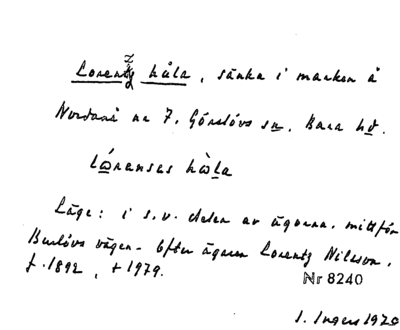 Lorentz håla, sänka i marken å
Nordanå nr 7. Görslövs sn, Bara hd.
lórenses hòla
Läge: i s.v. delen av ägorna. mittför
Burlövs vägen. Efter ägaren Lorentz Nilsson.
f. 1892, † 1979.
Nr 8240
I. Ingers 1979